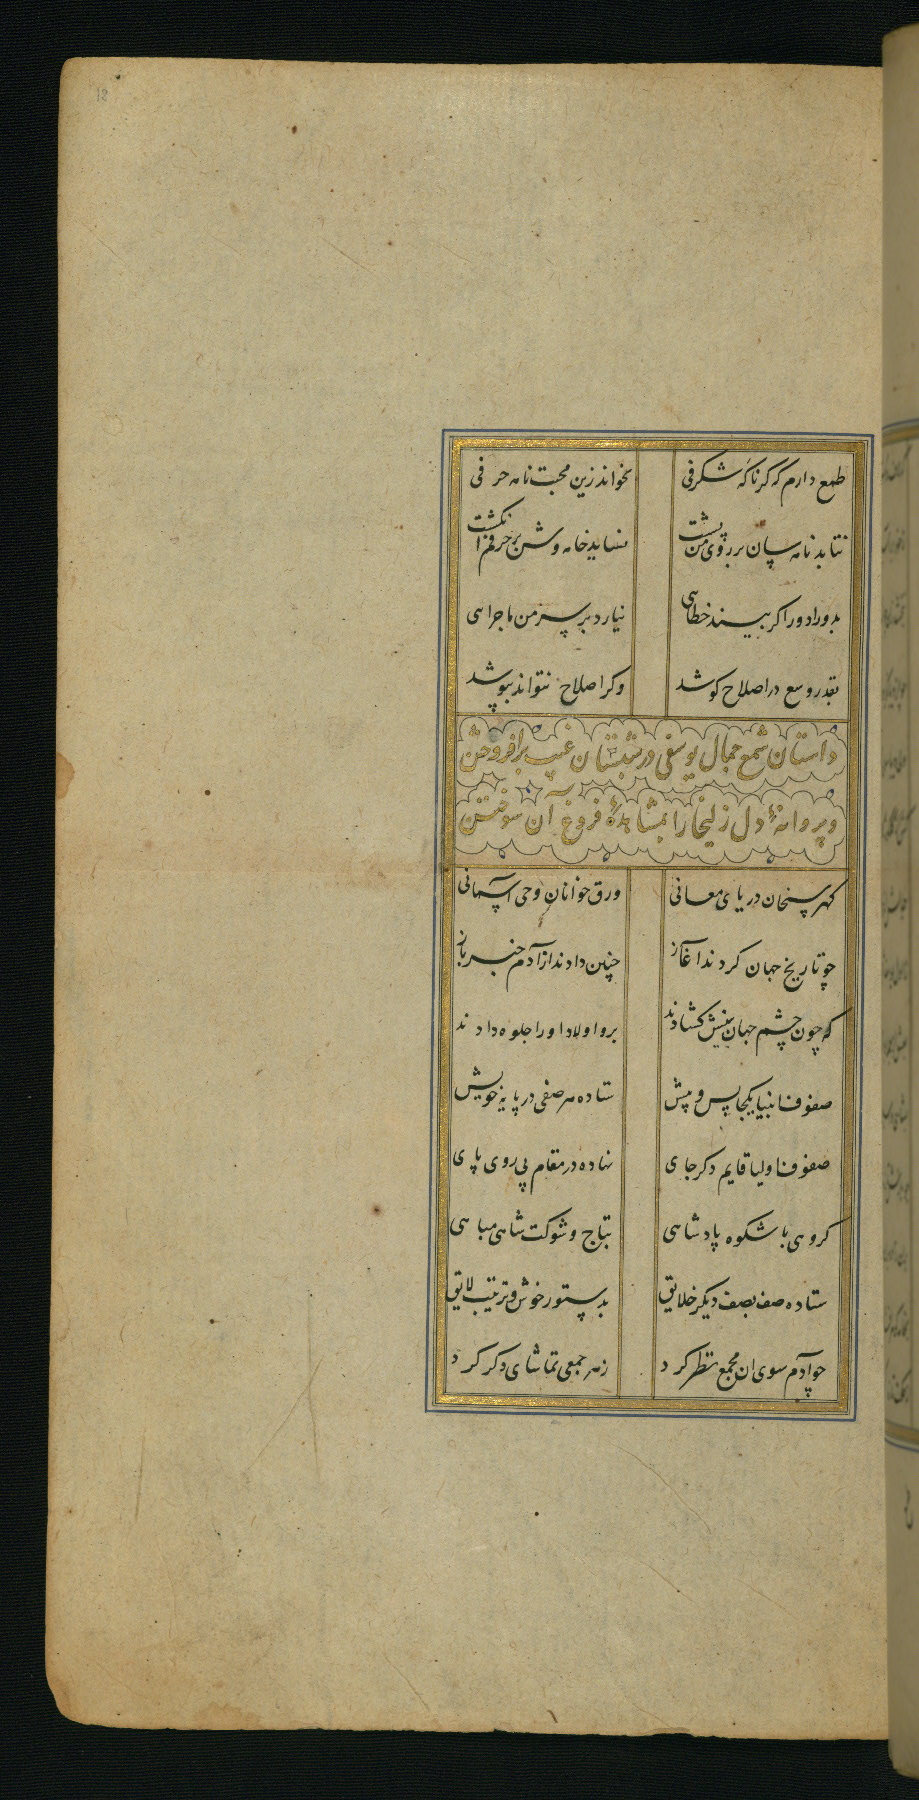 18
طمع دارم که گر ناگه شگرفی بخواند زین محبت نامه حرفی
نتابد نامه سان بر روی من پشت نساید خامه وش بر حرفم انگشت
بدور ادورا کر بیند خطایی نیارد بر سر من ماجرایی
بقدر وسع در اصلاح کوشد وکر اصلاح نتواند بپوشد
داستان شمع جمال یوسفی در شبستان غیب برافروختن
و پروانه دل زلیخا را بمشاهده فروغ آن سوختن
کهر سنجان دریای معانی ورق خوانان وحی آسمانی
چو تاریخ جهان کردند آغاز چنین دادند از آدم خبر باز
که چون چشم جهان بینش کشادند برو اولاد او را جلوه دادند
صفوف انبیا یکجا پس و پیش ستاده هر صفی در پایه خویش
صفوف اولیا قایم دکر جای نهاده در مقام پی روی پای
کروهی با شکوه پادشاهی بتاج و شوکت شاهی مباهی
ستاده صف بصف دیکر خلایق بدستور خوش و ترتیب لایق
چو آدم سوی ان مجمع نظر کرد ز هر جمعی تماشای دکر کرد